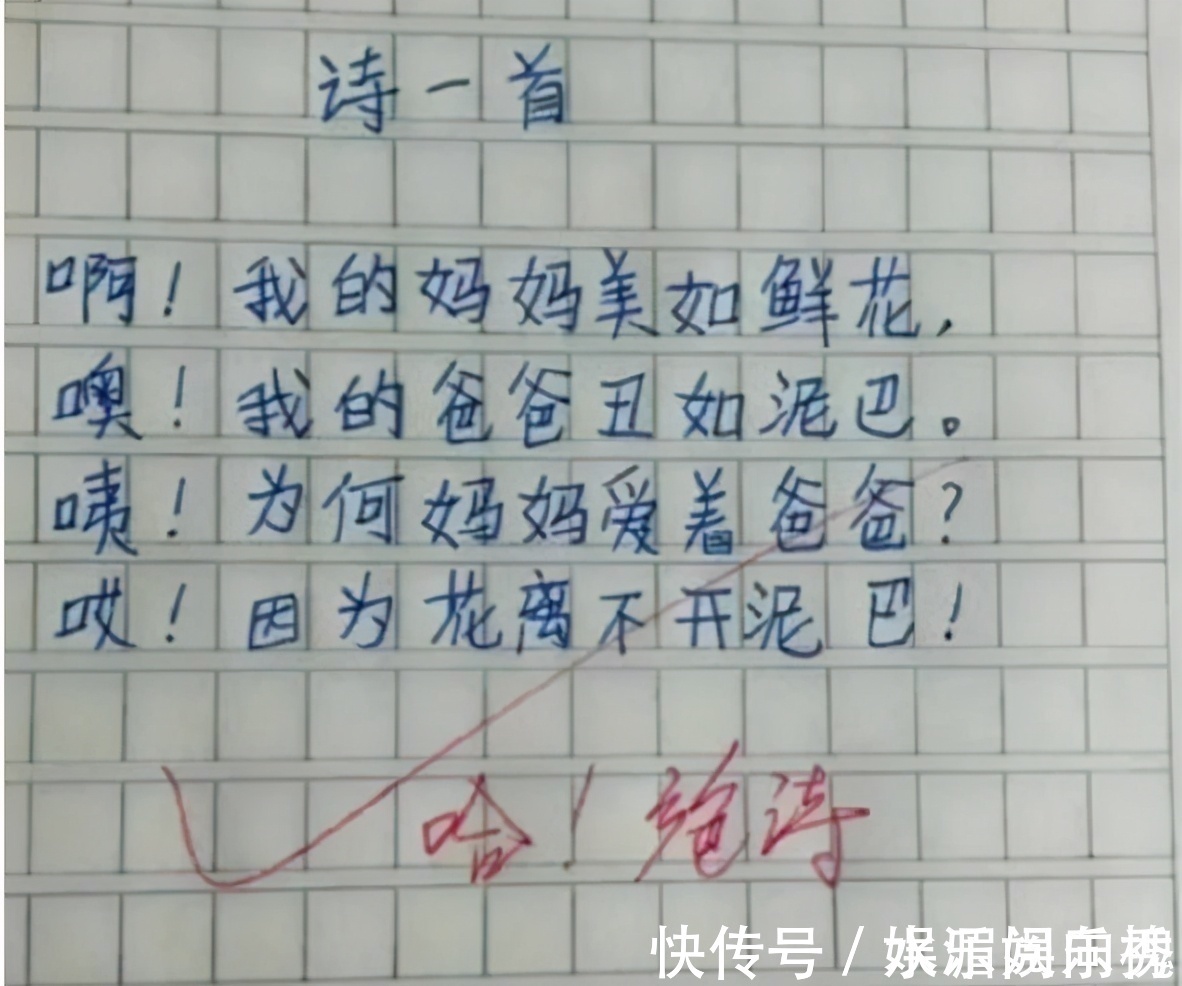 诗一首
啊！我的妈妈美如鲜花，
噢！我的爸爸丑如泥巴。
咦！为何妈妈爱着爸爸？
哎！因为花离不开泥巴！
哈！绝诗
快传号／娱